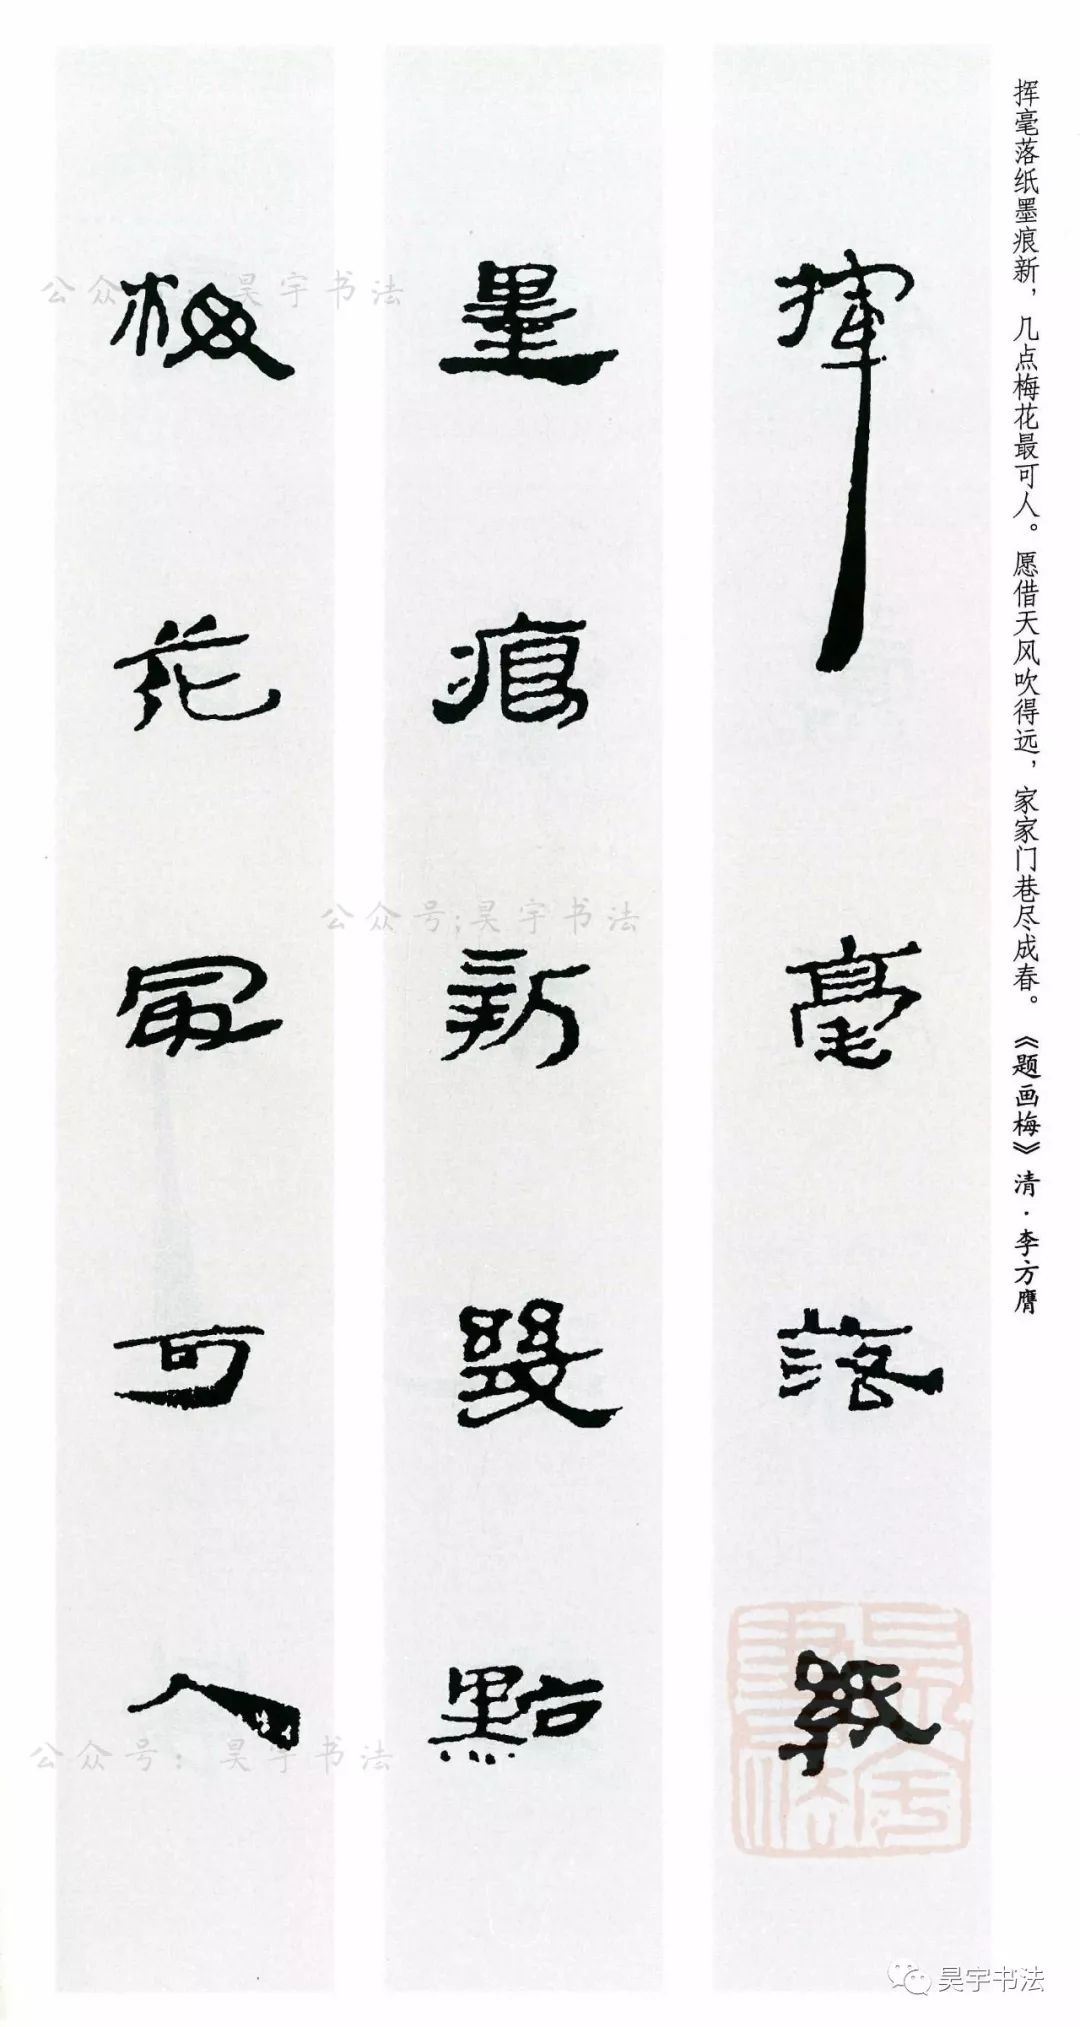 挥毫落纸墨痕新，几点梅花最可人。愿借天风吹得远，家家门巷尽成春。《题画梅》清·李方膺
揮毫落紙
墨痕新幾點
梅花最可人
公众号：昊宇书法
公众号;昊宇书法
公众号：昊宇书法
昊宇书法
昊宇书法